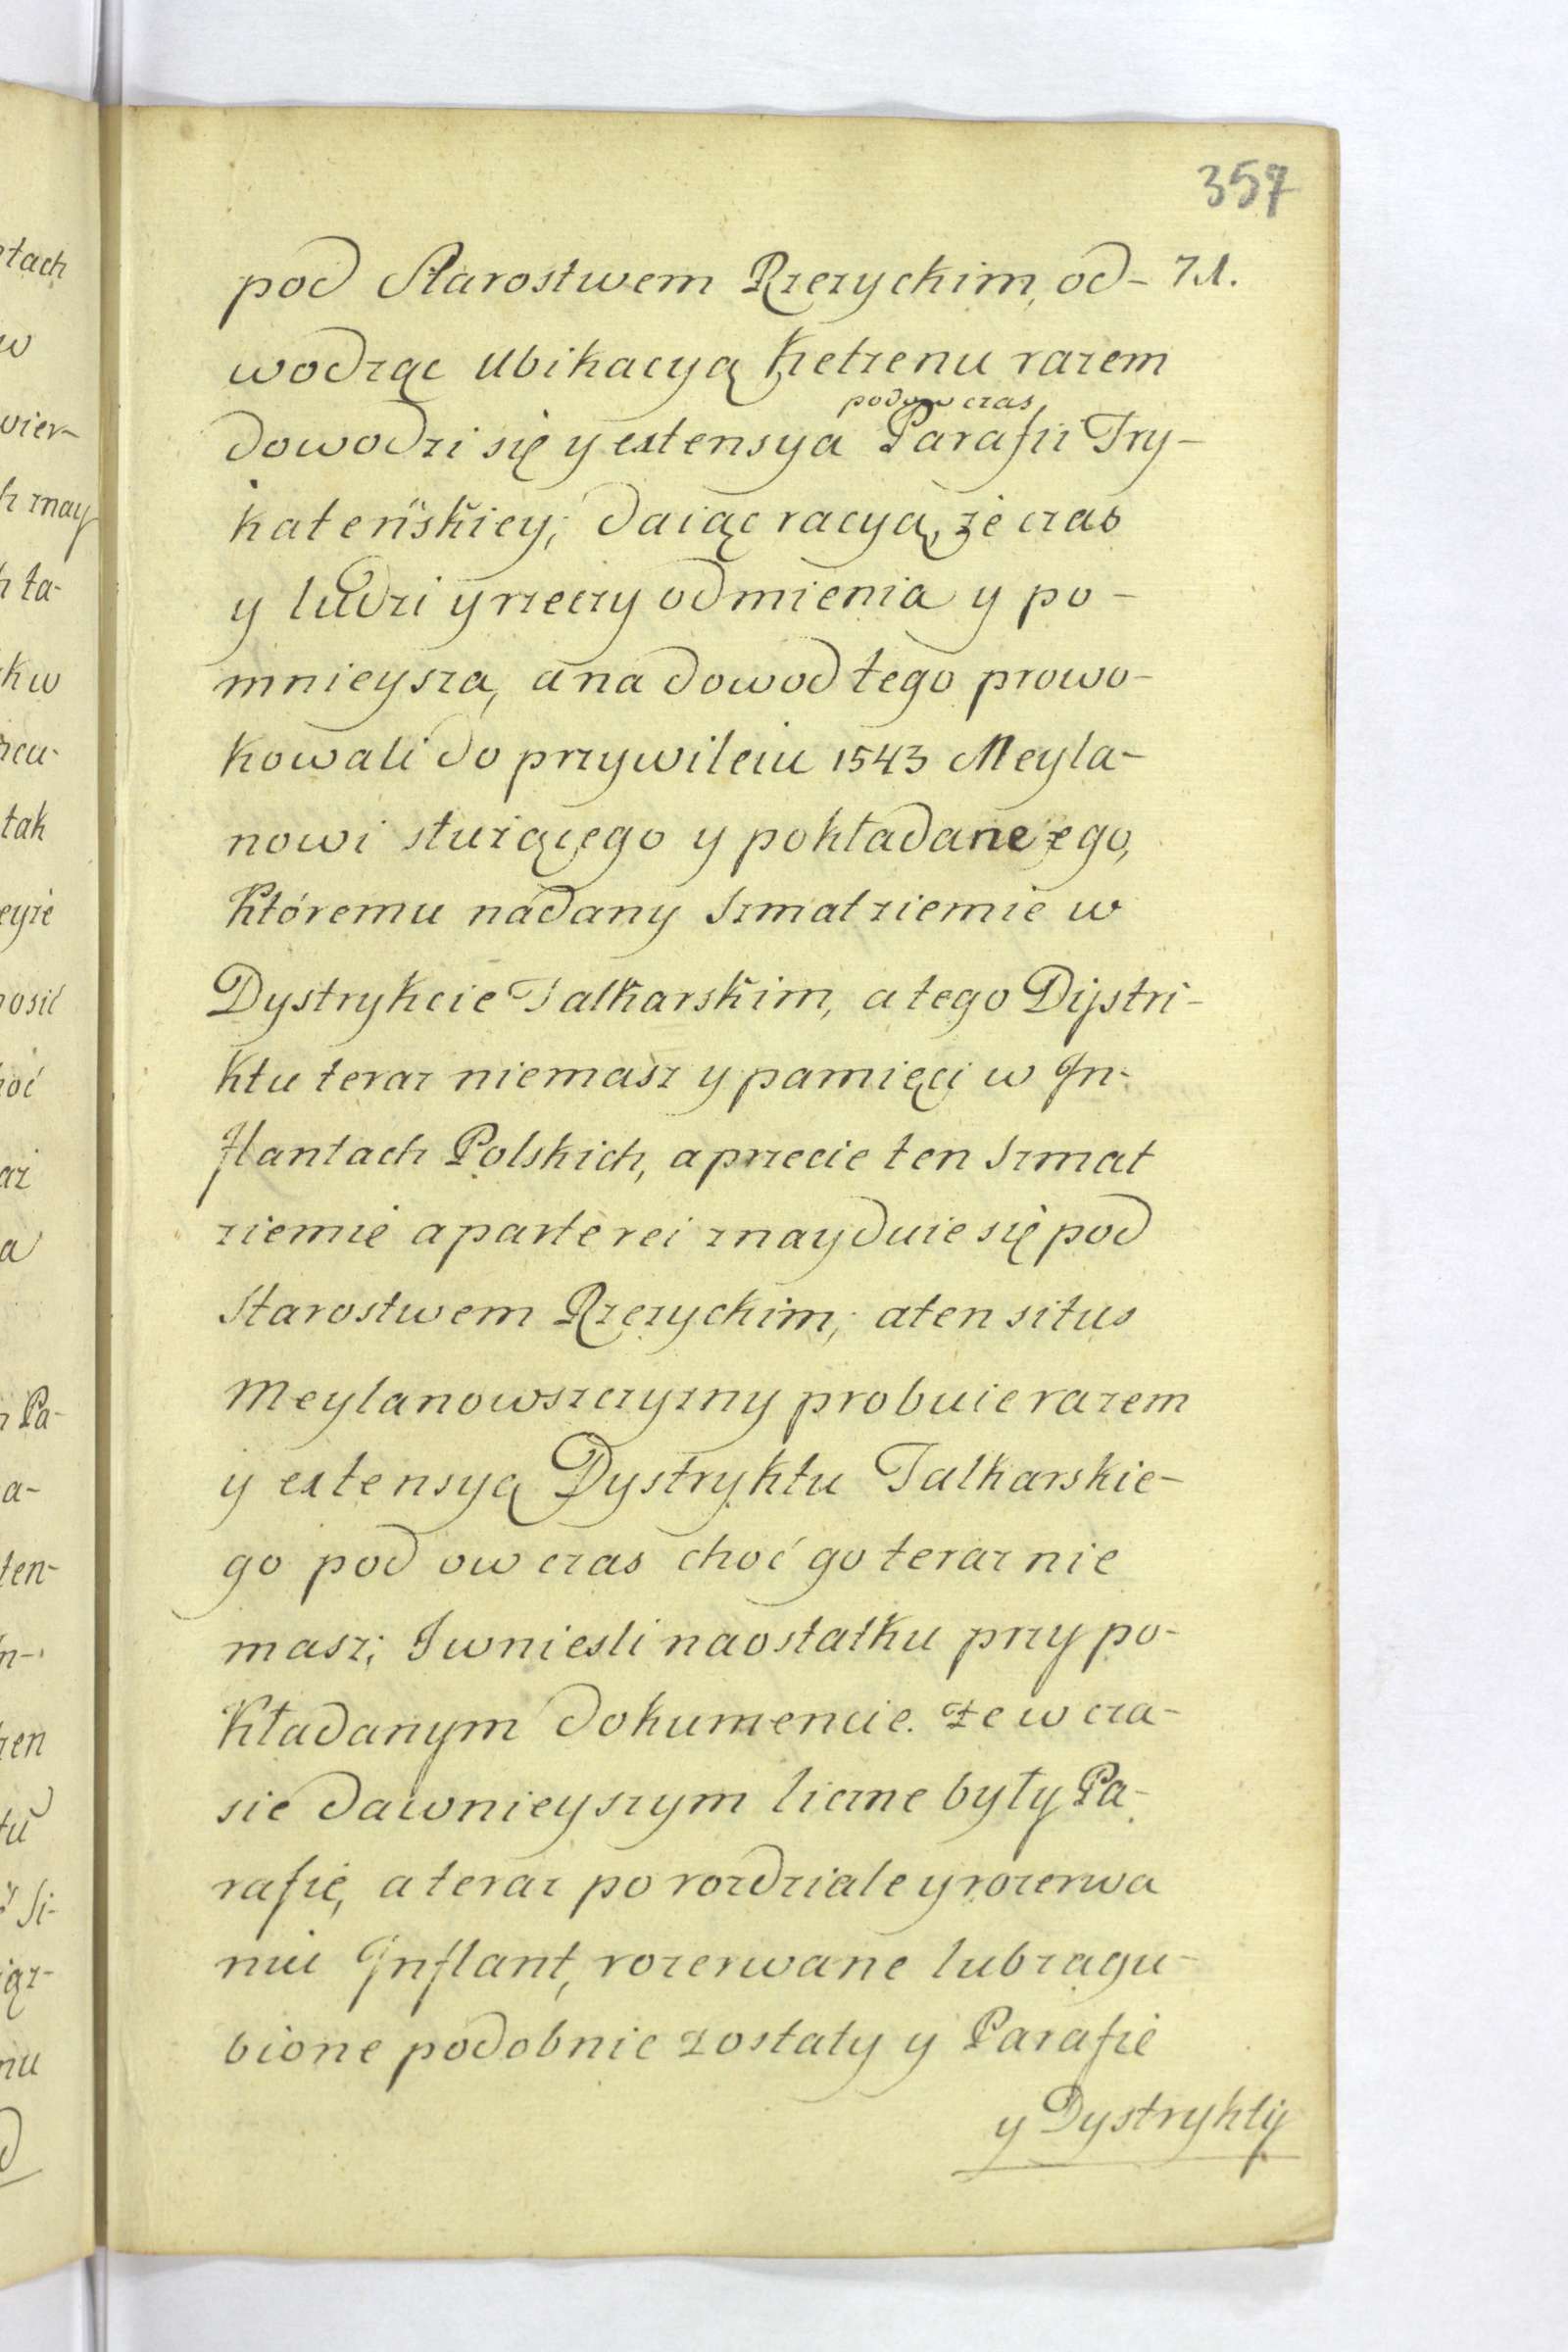 357
pod Starostwem Rzezyckim, od- 71.
wodząc Ubikacyą Ketzenu razem
podowczas
dowodzi się y extensya Parafii Try-
kateńskiey, daiąc racyą, że czas
y ludzi y rzeczy odmienia y po-
mnieysza, a na dowod tego prowo-
kowali do przywileiu 1543 Meyla-
nowi służącego y pokładanego,
Któremu nadany szmat ziemie w
Dystrykcie Talkarskim, a tego Dystri-
ktu teraz niemasz y pamięci w In-
flantach Polskich, a przecie ten szmat
ziemie a parte rei znayduie się pod
Starostwem Rzezyckim; a ten situs
Meylanowszczyzny probuie razem
y extensyą Dystryktu Talkarskie-
go pod ow czas choć go teraz nie
masz; I wniesli na ostatku przy po-
kładanym dokumencie. że w cza-
sie dawnieyszym liczne były Pa-
rafie, a teraz po rozdziale y rozerwa
niu Inflant, rozerwane lub zagu-
bione podobnie zostały y Parafie
y Dystrykty
tach
w
wier-
h may
h ta-
k w
tak
eyże
nosić
a
Pa-
a-
ten-
zen
tu
Si-
iąz-
nu